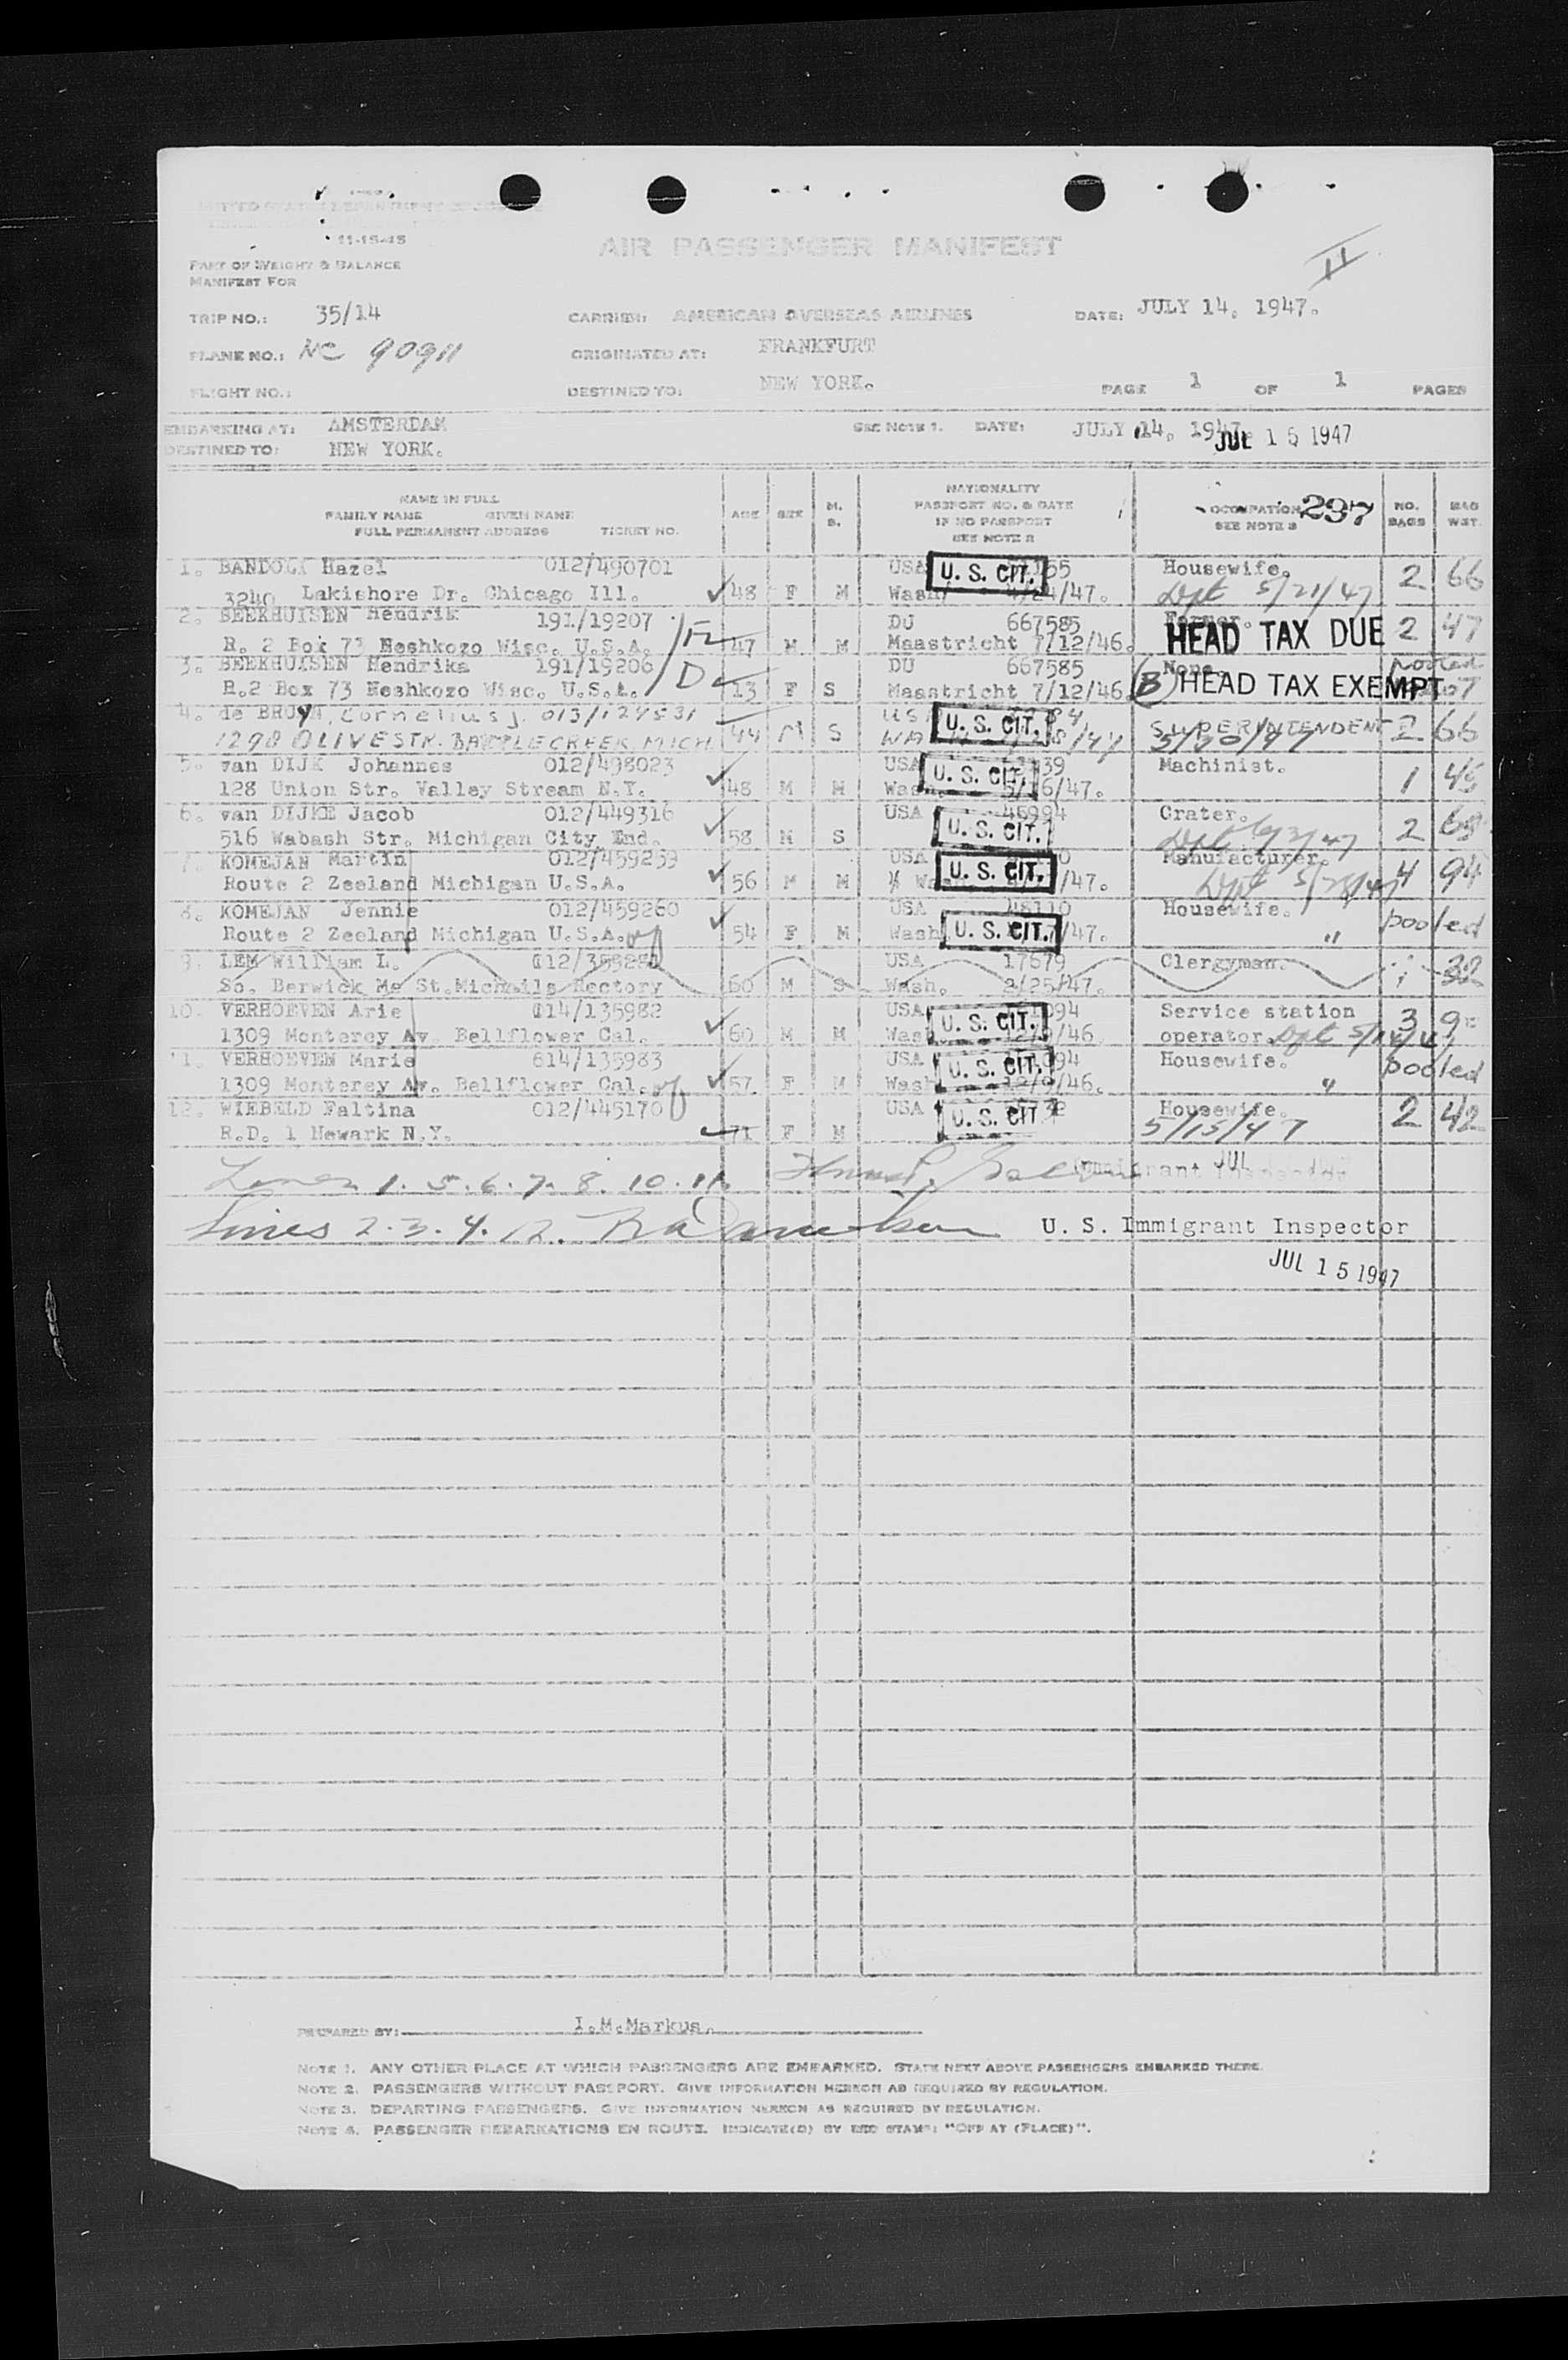 11-15-45
AIR PASSENGER MANIFEST
II
PART OF WEIGHT & BALANCE
MANIFEST FOR
TRIP NO.: 35/14 CARRIER: AMERICAN OVERSEAS AIRLINES DATE: JULY 14. 1947.
PLANE NO.: NC 90911 ORIGINATED AT: FRANKFURT
FLIGHT NO.: DESTINED TO: NEW YORK. PAGE 1 OF 1 PAGES
EMBARKING AT: AMSTERDAM SEE NOTE 1. DATE: JULY 14. 1947. JUL 15 1947
DESTINED TO: NEW YORK.
NAME IN FULL
FAMILY NAME GIVEN NAME
FULL PERMANENT ADDRESS TICKET NO.
AGE SEX M. S.
NATIONALITY
PASSPORT NO. & DATE
IF NO PASSPORT
SEE NOTE 2
OCCUPATION 237
SEE NOTE 3
NO. BAGS BAG WGT.
1. Hazel 012/490701 USA U. S. CIT. 55 Housewife. 2 66
3240 Lakeshore Dr. Chicago Ill. 48 F M Wash. /24/47. Dpt 5/21/47
2. BEEKHUISEN Hendrik 191/19207 DU 667585 Farmer. HEAD TAX DUE 2 47
R. 2 Box 73 Neshkozo Wisc. U.S.A. 47 M M Maastricht 7/12/46.
3. BEEKHUISEN Hendrika 191/19206 DU 667585 None. pooled
R.2 Box 73 Neshkozo Wisc. U.S.A. 13 F S Maastricht 7/12/46. (B) HEAD TAX EXEMPT
4. de BRUYN, Cornelius J. 013/124531 USA U. S. CIT. SUPERINTENDENT 2 66
1298 OLIVE STR. BATTLE CREEK, MICH 44 M S 5/20/47
5. van DIJK Johannes 012/498023 USA U. S. CIT. 39 Machinist. 1 45
128 Union Str. Valley Stream N.Y. 48 M M Wash. /6/47.
6. van DIJKE Jacob 012/449316 USA 46994 Crater. 2 68
516 Wabash Str. Michigan City Ind. 58 M S U. S. CIT. Dpt
7. KOMEJAN Martin 012/459259 USA Manufacturer. 4 94
Route 2 Zeeland Michigan U.S.A. 56 M M U. S. CIT. /47. Dpt 5/28/47
8. KOMEJAN Jennie 012/459260 USA 48110 Housewife. pooled
Route 2 Zeeland Michigan U.S.A. 54 F M Wash. U. S. CIT. /47. "
9. LEM William L. USA 17679 Clergyman. 32
So. Berwick Me St.Michails Rectory 60 M S Wash. 2/25/47.
10. VERHOEVEN Arie 014/135982 USA U. S. CIT. 094 Service station 3
1309 Monterey Av. Bellflower Cal. 60 M M Wash /46 operator. Dpt
11. VERHOEVEN Marie 614/135983 USA U. S. CIT. 094 Housewife. pooled
1309 Monterey Av. Bellflower Cal. 57 F M Wash 12/9/46. "
12. WIEBELD Faltina 012/445170 USA U. S. CIT. Housewife. 2 42
R.D. 1 Newark N.Y. 71 F M 5/15/47
Lines 1. 5. 6. 7. 8. 10. 11. Immigrant JUL
Lines 2. 3. 4. 12. U. S. Immigrant Inspector
JUL 15 1947
PREPARED BY: I.M.Markus.
NOTE 1. ANY OTHER PLACE AT WHICH PASSENGERS ARE EMBARKED. STATE NEXT ABOVE PASSENGERS EMBARKED THERE.
NOTE 2. PASSENGERS WITHOUT PASSPORT. GIVE INFORMATION HEREON AS REQUIRED BY REGULATION.
NOTE 3. DEPARTING PASSENGERS. GIVE INFORMATION HEREON AS REQUIRED BY REGULATION.
NOTE 4. PASSENGER DEBARKATIONS EN ROUTE. INDICATE(D) BY RED STAMP: "OFF AT (PLACE)".